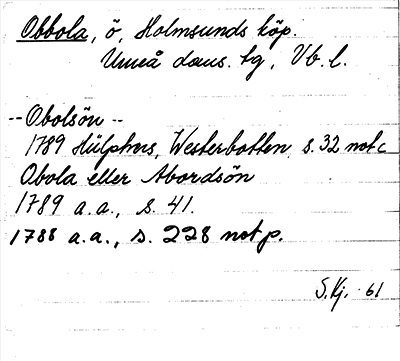 Obbola, ö, Holmsunds köp.
Umeå doms. tg, Vb. l.
-- Obolsön --
1789 Hülphers, Westerbotten, s. 32 not c
Obola eller Abordsön
1789 a.a., s. 41.
1788 a.a., s. 228 not p.
S. Kj. 61